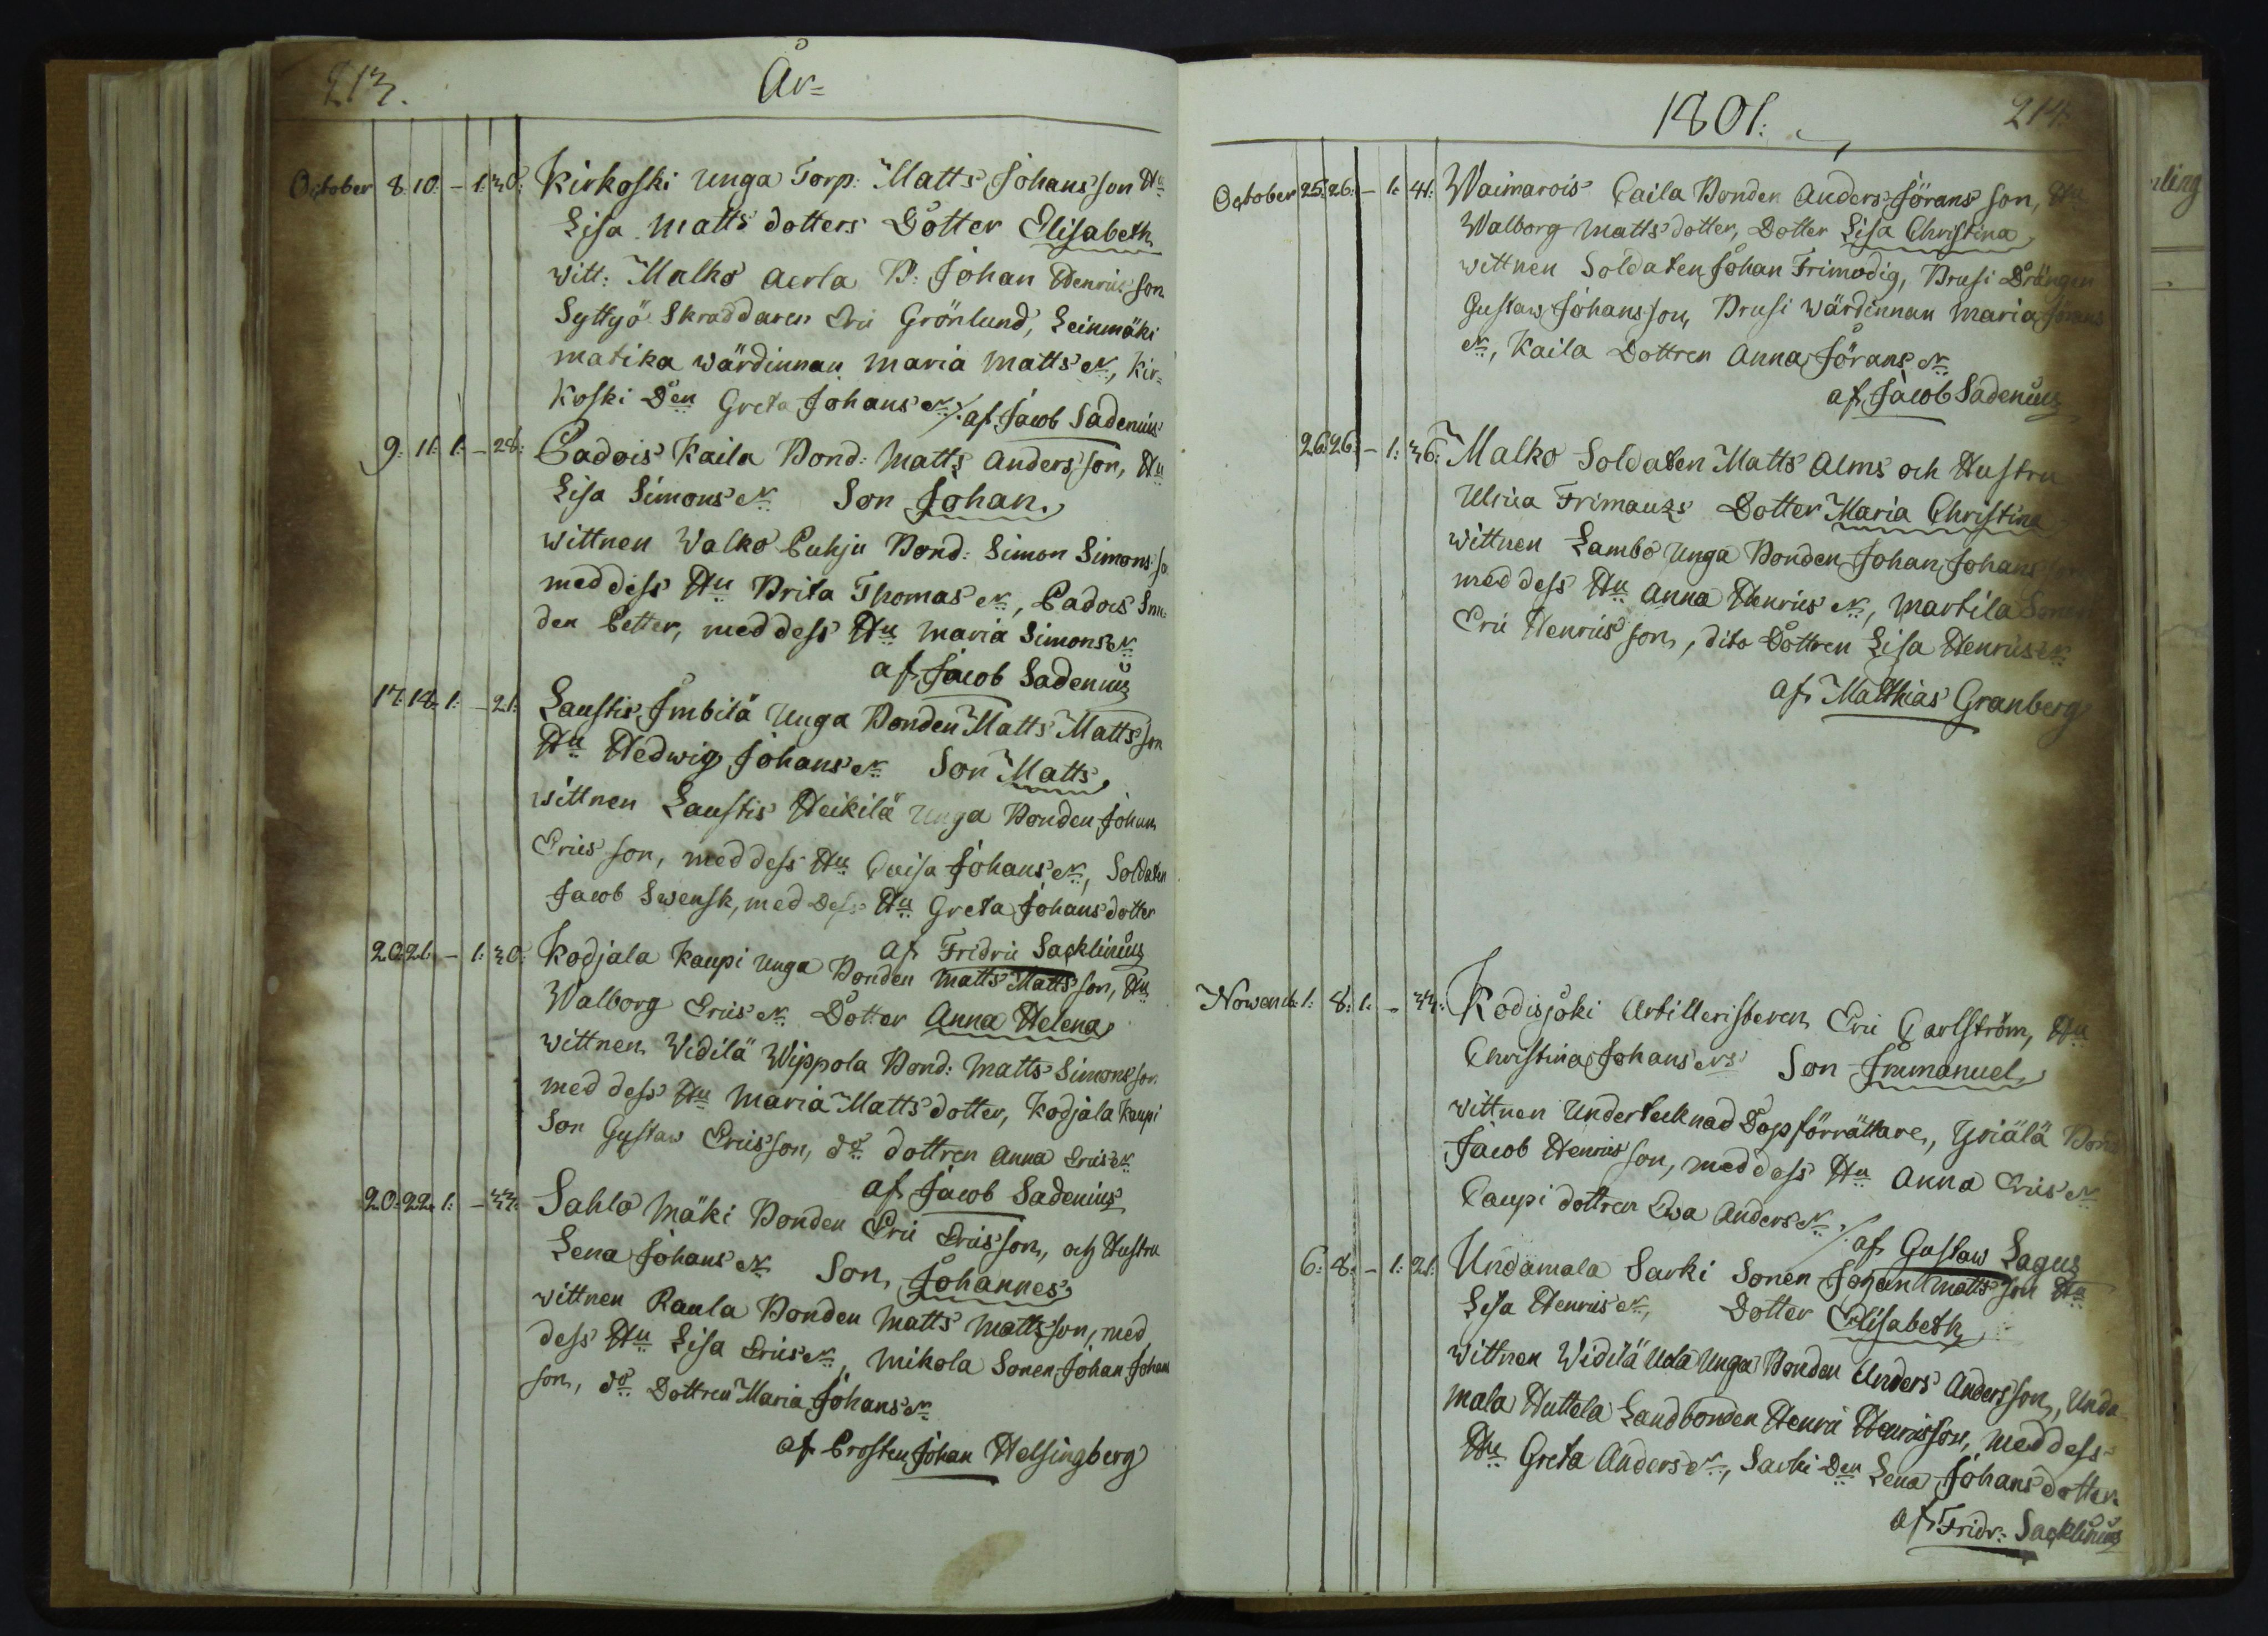 213.
År=
October 8. 10. – 1. 30: Kirkoski Unga Torp: Matts Johansson Hu
Lisa Mattsdotters Dotter Elisabeth
witt: Malko Aerla B: Johan Henricsson
Syttyö Skraddaren Eric Grönlund, Leinmäki
matika wärdinnan Maria Matts dr, Kir=
koski Den Greta Johans dr ∕. af Jacob Sadenius
9: 11: 1: – 28: Cadois Kaila Bond: Matts Andersson, Hu
Lisa Simons dr Son Johan
wittnen Walko Cuhju Bond: Simon Simons so
med dess Hu Brita Thomas dr, Cadois
den Petter, med dess Hu Maria Simons dr
af Jacob Sadenius
17. 18. 1: – 21: Laustis Imbilä Unga Bonden Matts Mattsson
Hu Hedwig Johans dr Son Matts
wittnen Laustis Heikilä Unga Bonden Johan
Ericsson, med dess Hu Caisa Johans dr, Soldaten
Jacob Swensk, med Dess Hu Greta Johansdotter
af Fridric Sacklinius
20. 21. – 1: 30: Kodjala Kaupi unga Bonden Matts Mattsson, Hu
Walborg Erics dr Dotter Anna Helena
wittnen Widilä Wippola Bond: Matts Simonsson
med dess Hu Maria Mattsdotter, Kodjala Kaupi
Son Gustaw Ericsson, do dottren Anna Erics dr
af Jacob Sadenius
20. 22. 1: – 33: Sahlo Mäki Bonden Eric Ericsson, och Hustru
Lena Johans dr Son Johannes
wittnen Raula Bonden Matts Mattsson, med
dess Hu Lisa Erics dr, Mikola Sonen Johan Johans
son, do Dottren Maria Johans dr
af Prosten Johan Helsingberg
1801:
214.
October 25. 26: – 1: 41: Waimarois Caila Bonden Anders Jöransson, Hu
Walborg Mattsdotter, Dotter Lisa Christina
wittnen Soldaten Johan Frimodig, Brusi Drängen
Gustaw Johansson, Brusi wärdinnan Maria Jörans
dr, Kaila Dottren Anna Jörans dr
af Jacob Sadenius
26. 26: – 1: 36: Malko Soldaten Matts Alms och Hustru
Ulrica Frimans Dotter Maria Christina
wittnen Lambo Unga Bonden Johan Johansson
med dess Hu Anna Henrics dr, Martila Sonen
Eric Henricsson, dito Dottren Lisa Henrics dr
af Matthias Granberg
Nowemb: 1: 8: 1: – 33: Kodisjoki Artilleristeren Eric Carlström, Hu
Christina Johans drs Son Immanuel
wittnen Undertecknad Dopförrättare, Yriälä Bond
Jacob Henricsson, med dess Hu Anna Erics dr
Caupi dottren Ewa Anders dr ∕. af Gustaw Lagus
6: 8. – 1: 21: Undamala Sarki Sonen Johan Mattsson Hu
Lisa Henrics dr, Dotter Elisabeth
wittnen Widilä Uola Unga Bonden Anders Andersson, Unda
mala Huttala Landbonden Henric Henricsson, med dess
Hu Greta Anders dr, Sarki Den Lena Johansdotter
af Fridr: Sacklinius
rling